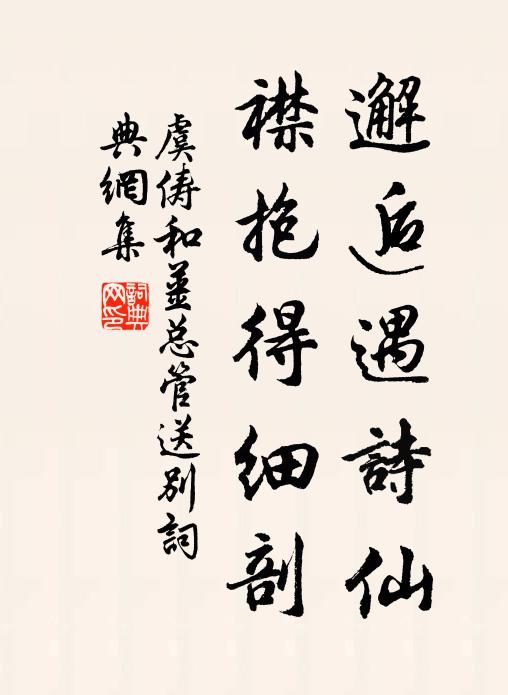 邂逅遇詩仙
襟抱得细剖
虞俦和姜总管送別詞
典網集
詞典网印